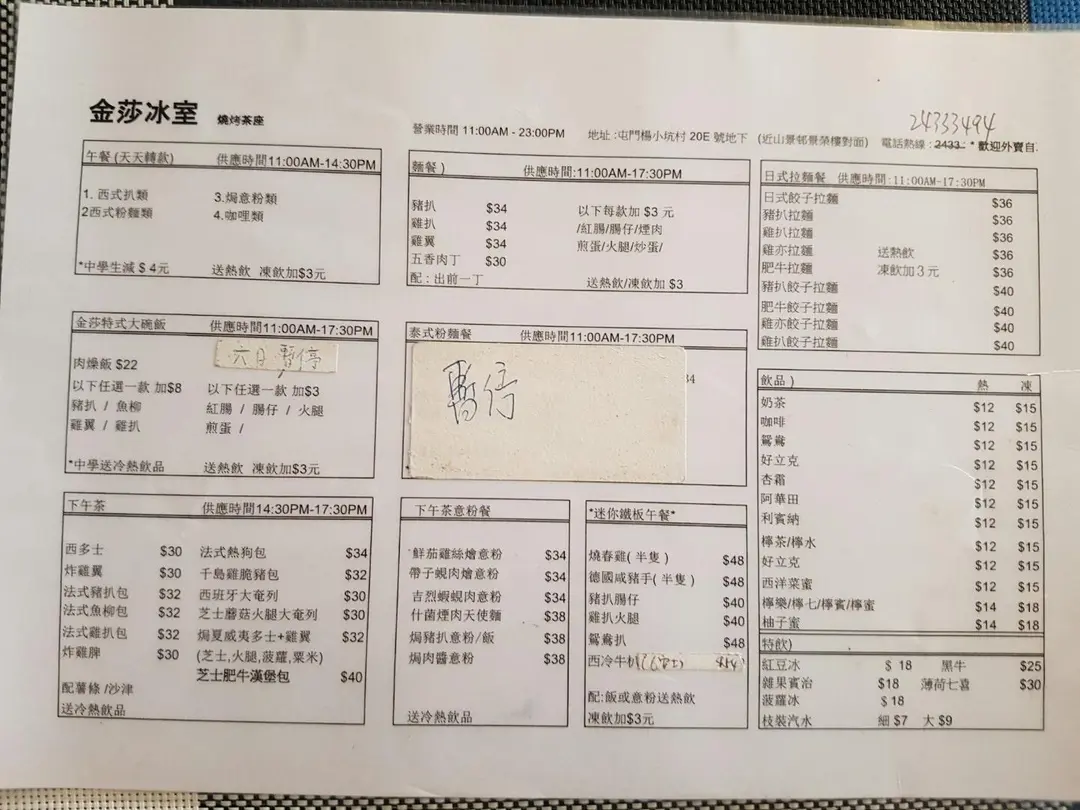 金莎冰室 燒烤茶座
營業時間 11:00AM - 23:00PM 地址:屯門楊小坑村 20E 號地下 (近山景邨景榮樓對面) 電話熱線:2433.. *歡迎外賣自.
24333494
午餐 (天天轉款) 供應時間11:00AM-14:30PM
1. 西式扒類 3.焗意粉類
2西式粉麵類 4.咖哩類
*中學生減 $ 4元 送熱飲 凍飲加$3元
麵餐 ) 供應時間:11:00AM-17:30PM
豬扒 $34 以下每款加 $3 元
雞扒 $34 /紅腸/腸仔/煙肉
雞翼 $34 煎蛋/火腿/炒蛋/
五香肉丁 $30
配 : 出前一丁 送熱飲/凍飲加 $3
日式拉麵餐 供應時間:11:00AM-17:30PM
日式餃子拉麵 $36
豬扒拉麵 $36
雞扒拉麵 $36
雞亦拉麵 送熱飲 $36
肥牛拉麵 凍飲加 3 元 $36
豬扒餃子拉麵 $40
肥牛餃子拉麵 $40
雞亦餃子拉麵 $40
雞扒餃子拉麵 $40
金莎特式大碗飯 供應時間11:00AM-17:30PM
六日 暫停
肉燥飯 $22
以下任選一款 加$8 以下任選一款 加$3
豬扒 / 魚柳 紅腸 / 腸仔 / 火腿
雞翼 / 雞扒 煎蛋 /
*中學送冷熱飲品 送熱飲 凍飲加$3元
泰式粉麵餐 供應時間11:00AM-17:30PM
暫停
34
*
飲品 ) 熱 凍
奶茶 $12 $15
咖啡 $12 $15
鴛鴦 $12 $15
好立克 $12 $15
杏霜 $12 $15
阿華田 $12 $15
利賓納 $12 $15
檸茶/檸水 $12 $15
好立克 $12 $15
西洋菜蜜 $12 $15
檸樂/檸七/檸賓/檸蜜 $14 $18
柚子蜜 $14 $18
特飲)
紅豆冰 $ 18 黑牛 $25
雜果賓治 $18 薄荷七喜 $30
菠蘿冰 $ 18
枝裝汽水 細 $7 大 $9
下午茶 供應時間14:30PM-17:30PM
西多士 $30 法式熱狗包 $34
炸雞翼 $30 千島雞脆豬包 $32
法式豬扒包 $32 西班牙大奄列 $30
法式魚柳包 $32 芝士蘑菇火腿大奄列 $30
法式雞扒包 $32 焗夏威夷多士+雞翼 $32
炸雞髀 $30 (芝士,火腿,菠蘿,粟米)
芝士肥牛漢堡包 $40
配薯條 /沙津
送冷熱飲品
下午茶意粉餐
鮮茄雞絲燴意粉 $34
帶子蜆肉燴意粉 $34
吉烈蝦蜆肉意粉 $34
什菌煙肉天使麵 $38
焗豬扒意粉/飯 $38
焗肉醬意粉 $38
送冷熱飲品
*迷你鐵板午餐*
燒春雞( 半隻 ) $48
德國咸豬手( 半隻 ) $48
豬扒腸仔 $40
雞扒火腿 $40
鴛鴦扒 $48
西冷牛扒
配:飯或意粉送熱飲
凍飲加$3元